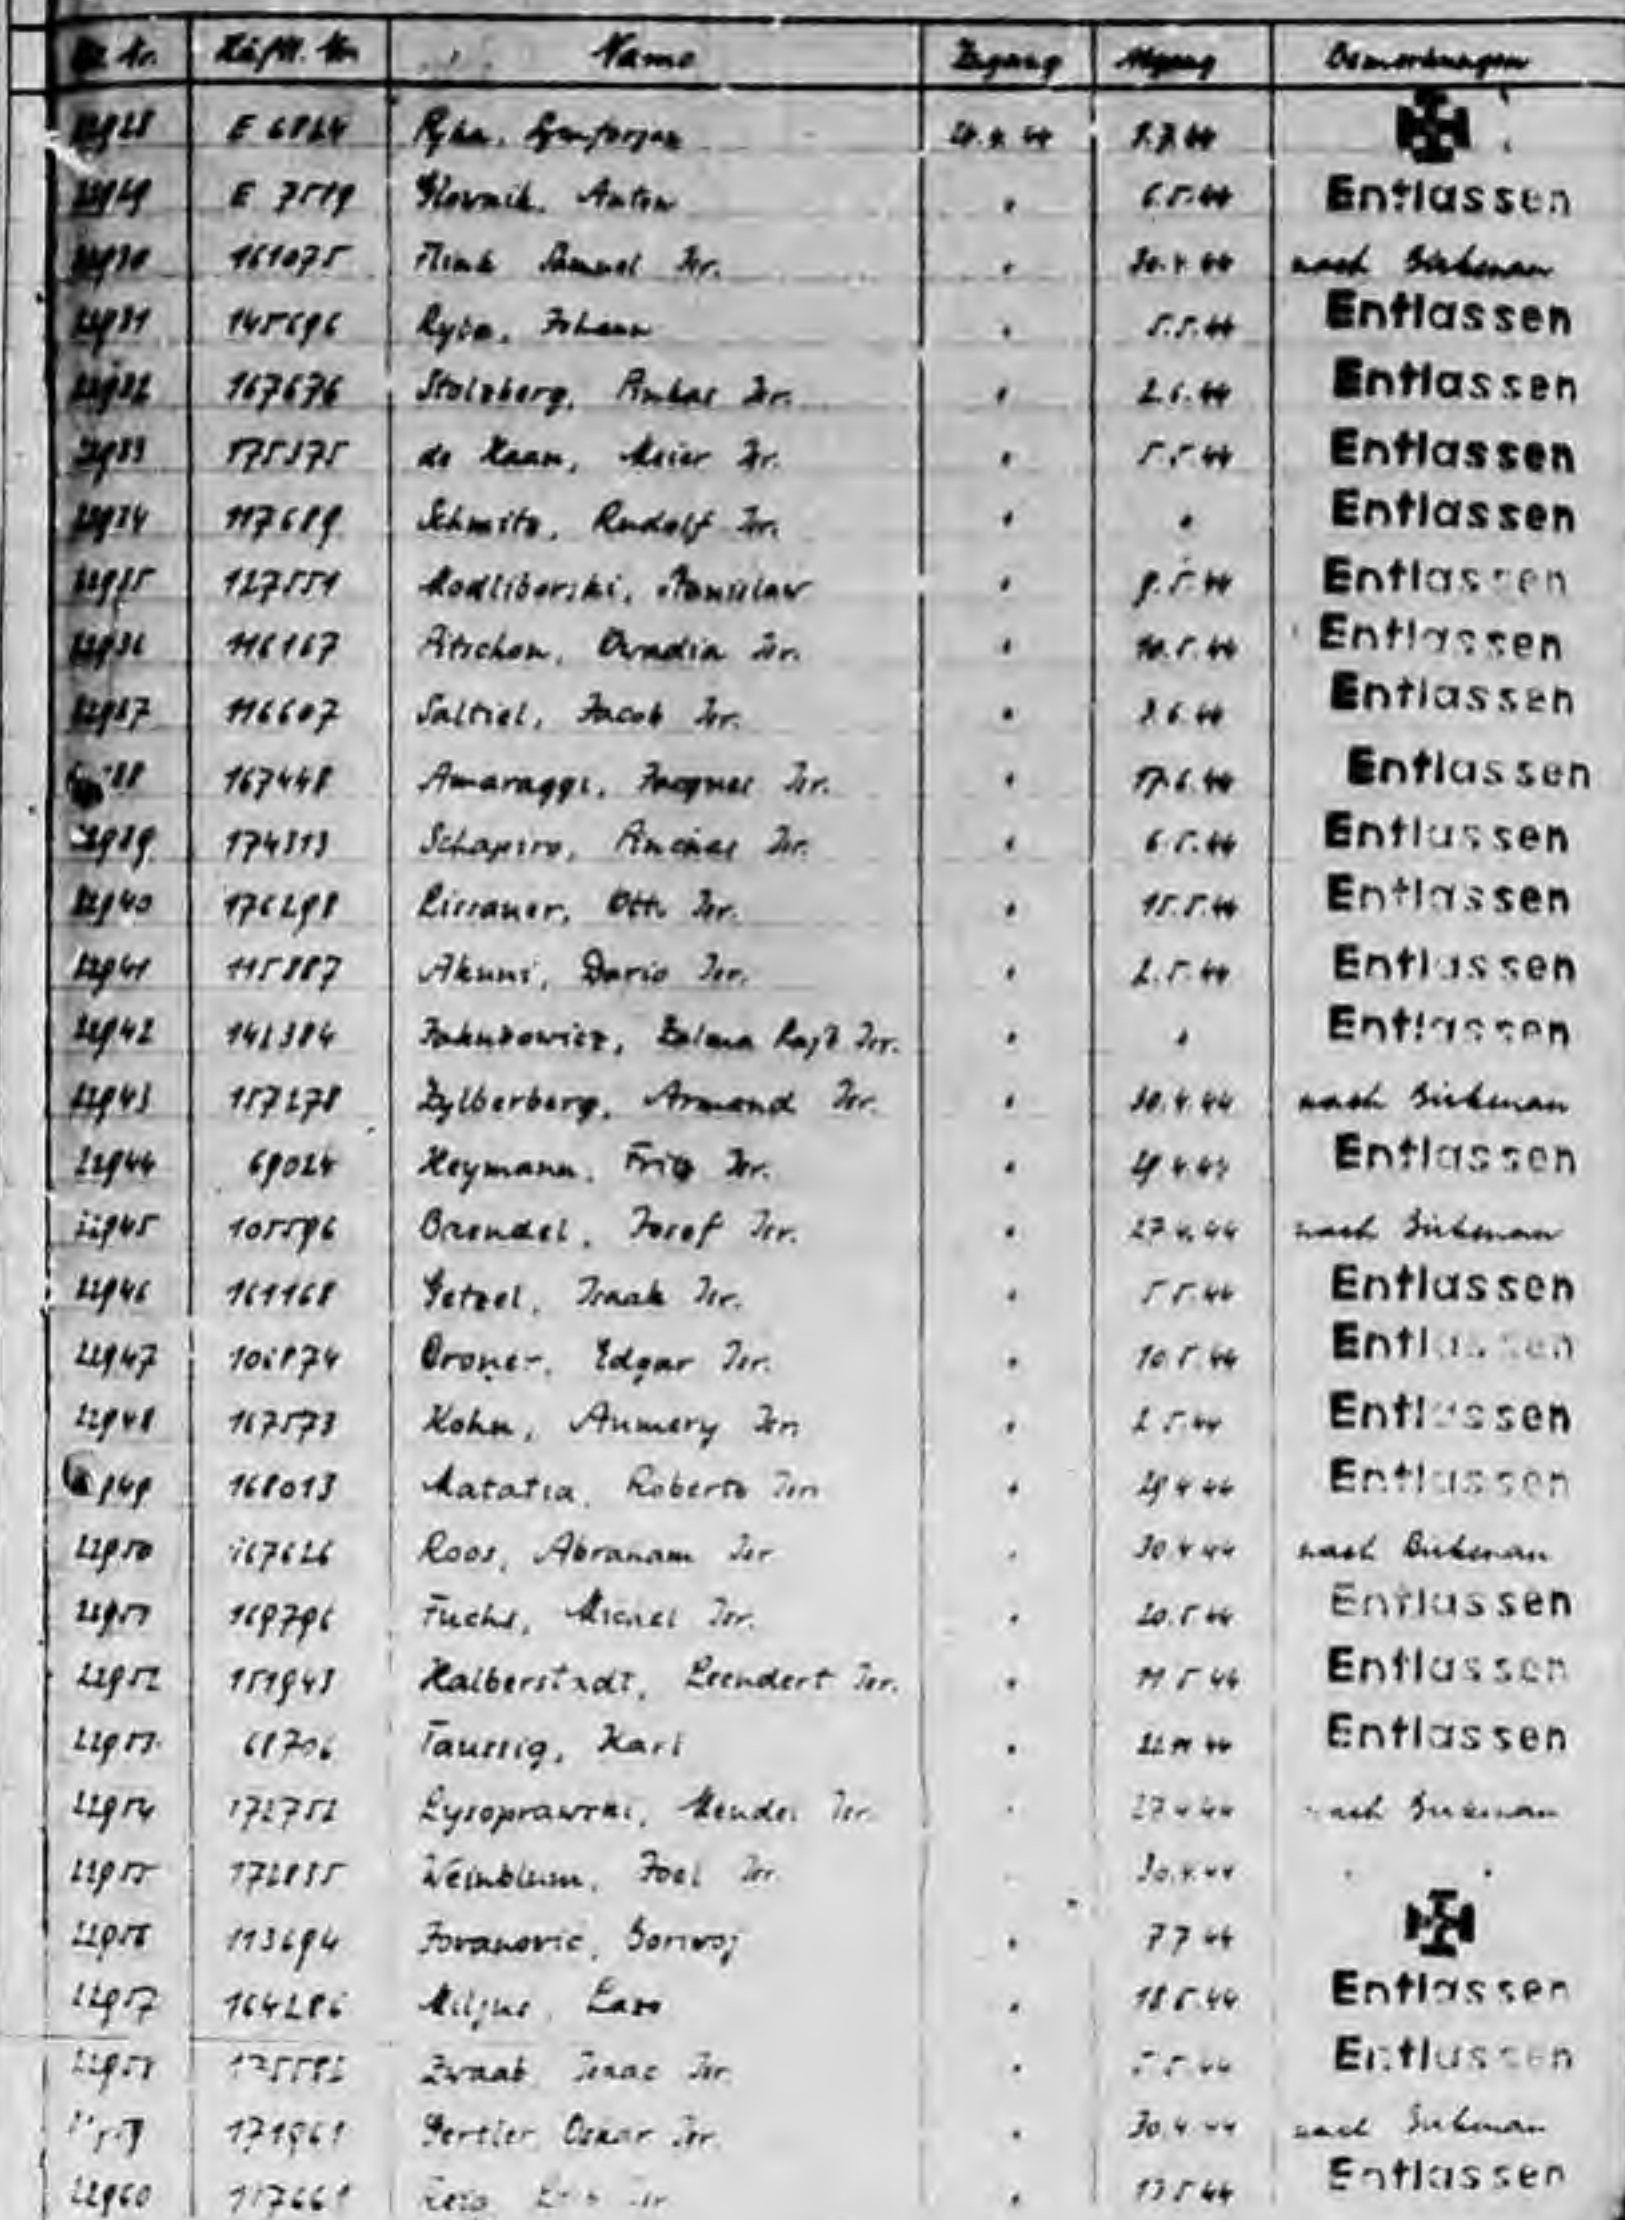 Häftl. Nr. Name Zugang Abgang Bemerkungen
22928 E 6824 Ryba, 26.4.44 8.7.44
22929 E 7519 Anton " 6.5.44 Entlassen
22930 161075 Flink Samuel Isr. " 30.4.44 nach Birkenau
22931 145696 Ryba, Johann " 5.5.44 Entlassen
22932 167676 Stolzberg, Isr. " 2.6.44 Entlassen
22933 175375 de Haan, Meier Isr. " 5.5.44 Entlassen
22934 117689 Schmitz, Rudolf Isr. " " Entlassen
22935 127551 Modliborski, Stanislaw " 9.5.44 Entlassen
22936 116167 Pitschon, Ovadia Isr. " 10.5.44 Entlassen
22937 116607 Saltiel, Jacob Isr. " 7.6.44 Entlassen
167448 Amaraggi, Jacques Isr. " 17.6.44 Entlassen
22939 174313 Schapiro, Isr. " 6.5.44 Entlassen
22940 176298 Lissauer, Otto Isr. " 15.5.44 Entlassen
22941 115887 Akuni, Dario Isr. " 2.5.44 Entlassen
22942 142384 Jakubowicz, Isr. " " Entlassen
22943 157278 Zylberberg, Armand Isr. " 30.4.44 nach Birkenau
22944 69024 Heymann, Fritz Isr. " 29.4.44 Entlassen
22945 105596 Brendel, Josef Isr. " 27.4.44 nach Birkenau
22946 161168 Getzel, Isaak Isr. " 5.5.44 Entlassen
22947 106874 Croner, Edgar Isr. " 10.5.44 Entlassen
22948 167573 Kohn, Aumery Isr. " 2.5.44 Entlassen
22949 168013 Matatia, Roberto Isr. " 29.4.44 Entlassen
22950 167626 Roos, Abraham Isr " 30.4.44 nach Birkenau
22951 169796 Fuchs, Michel Isr. " 20.5.44 Entlassen
22952 151943 Halberstadt, Leendert Isr. " 11.5.44 Entlassen
22953 68706 Taussig, Karl " 22.11.44 Entlassen
22954 172752 Lysoprawski, Mendel Isr. " 27.4.44 nach Birkenau
22955 172835 Weinblum, Joel Isr " 30.4.44 " "
22956 113694 Jovanovic, Borivoj " 7.7.44
22957 164286 Miljus, Lazo " 18.5.44 Entlassen
22958 175592 Zwaab, Isaac Isr. " 5.5.44 Entlassen
171961 Gertler Oskar Isr. " 30.4.44 nach Birkenau
22960 117661 " 13.5.44 Entlassen